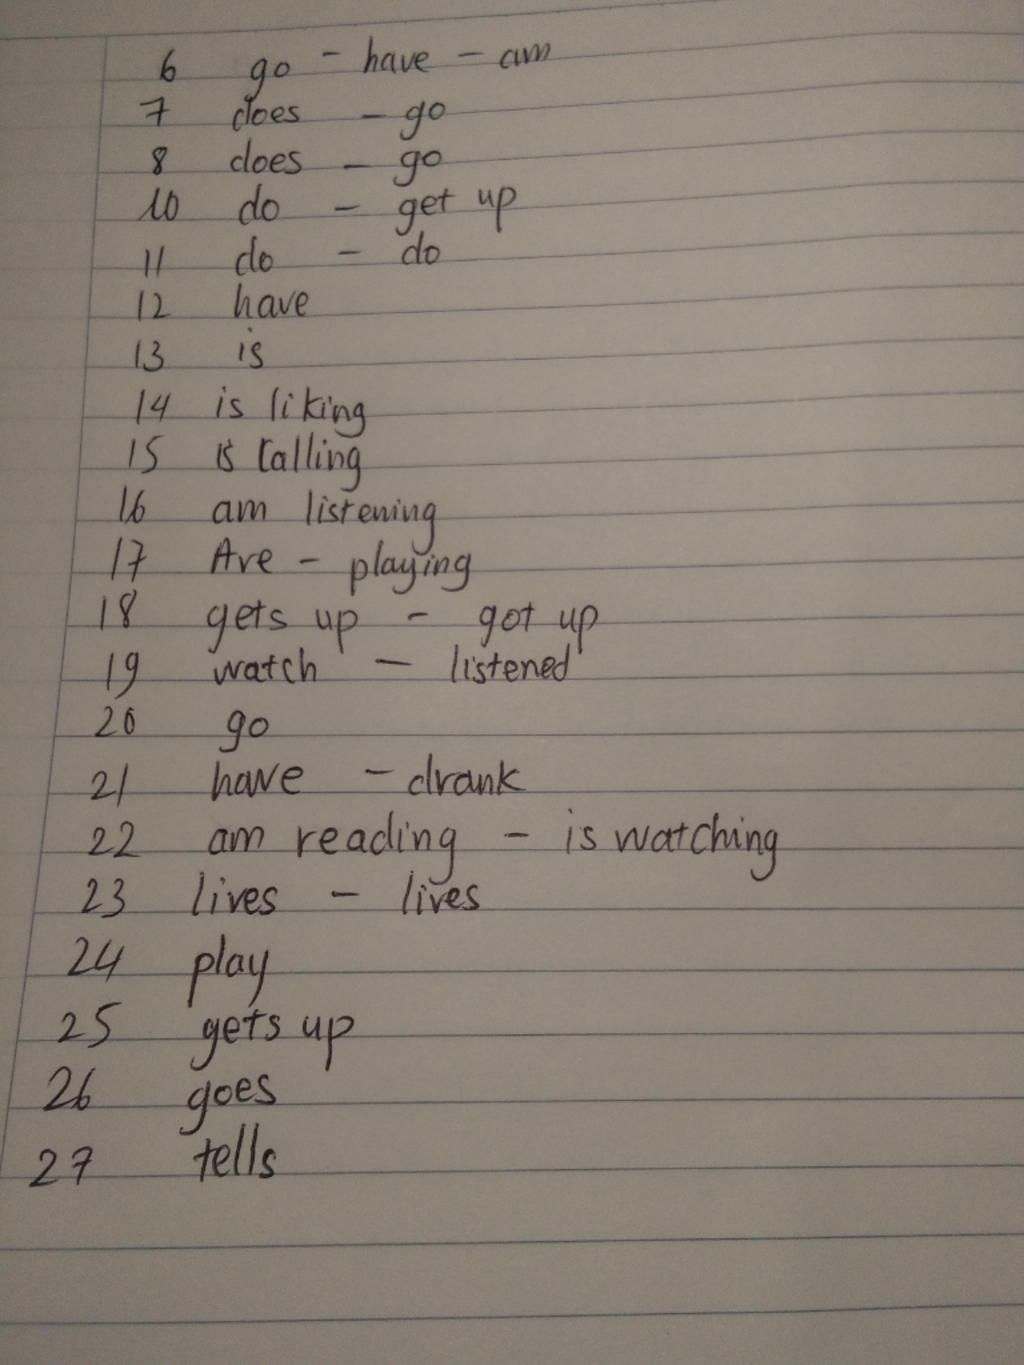 6 go - have - am
7 does - go
8 does - go
10 do - get up
11 do - do
12 have
13 is
14 is liking
15 is calling
16 am listening
17 Are - playing
18 gets up - got up
19 watch - listened
20 go
21 have - drank
22 am reading - is watching
23 lives - lives
24 play
25 gets up
26 goes
27 tells